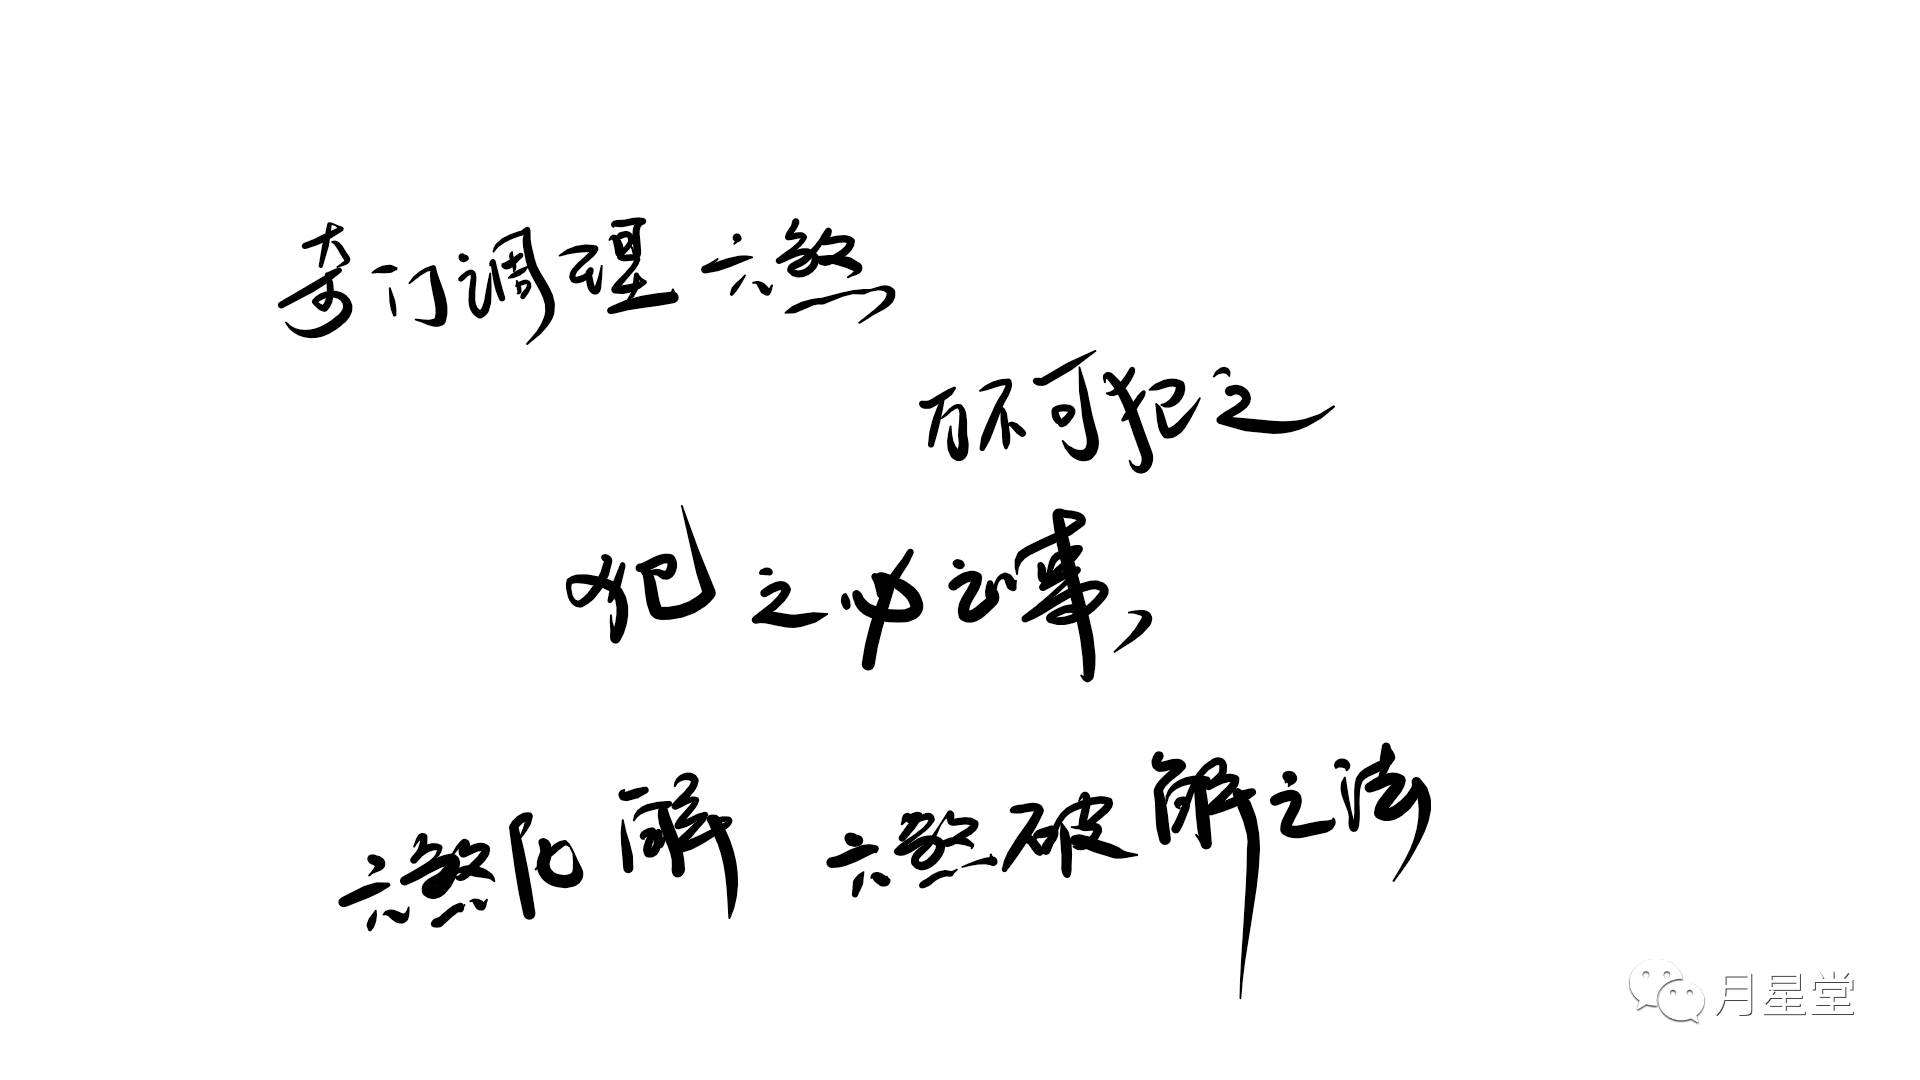 奇门调理六煞
万不可犯之
犯之必出事,
六煞化解 六煞破解之法
月星堂